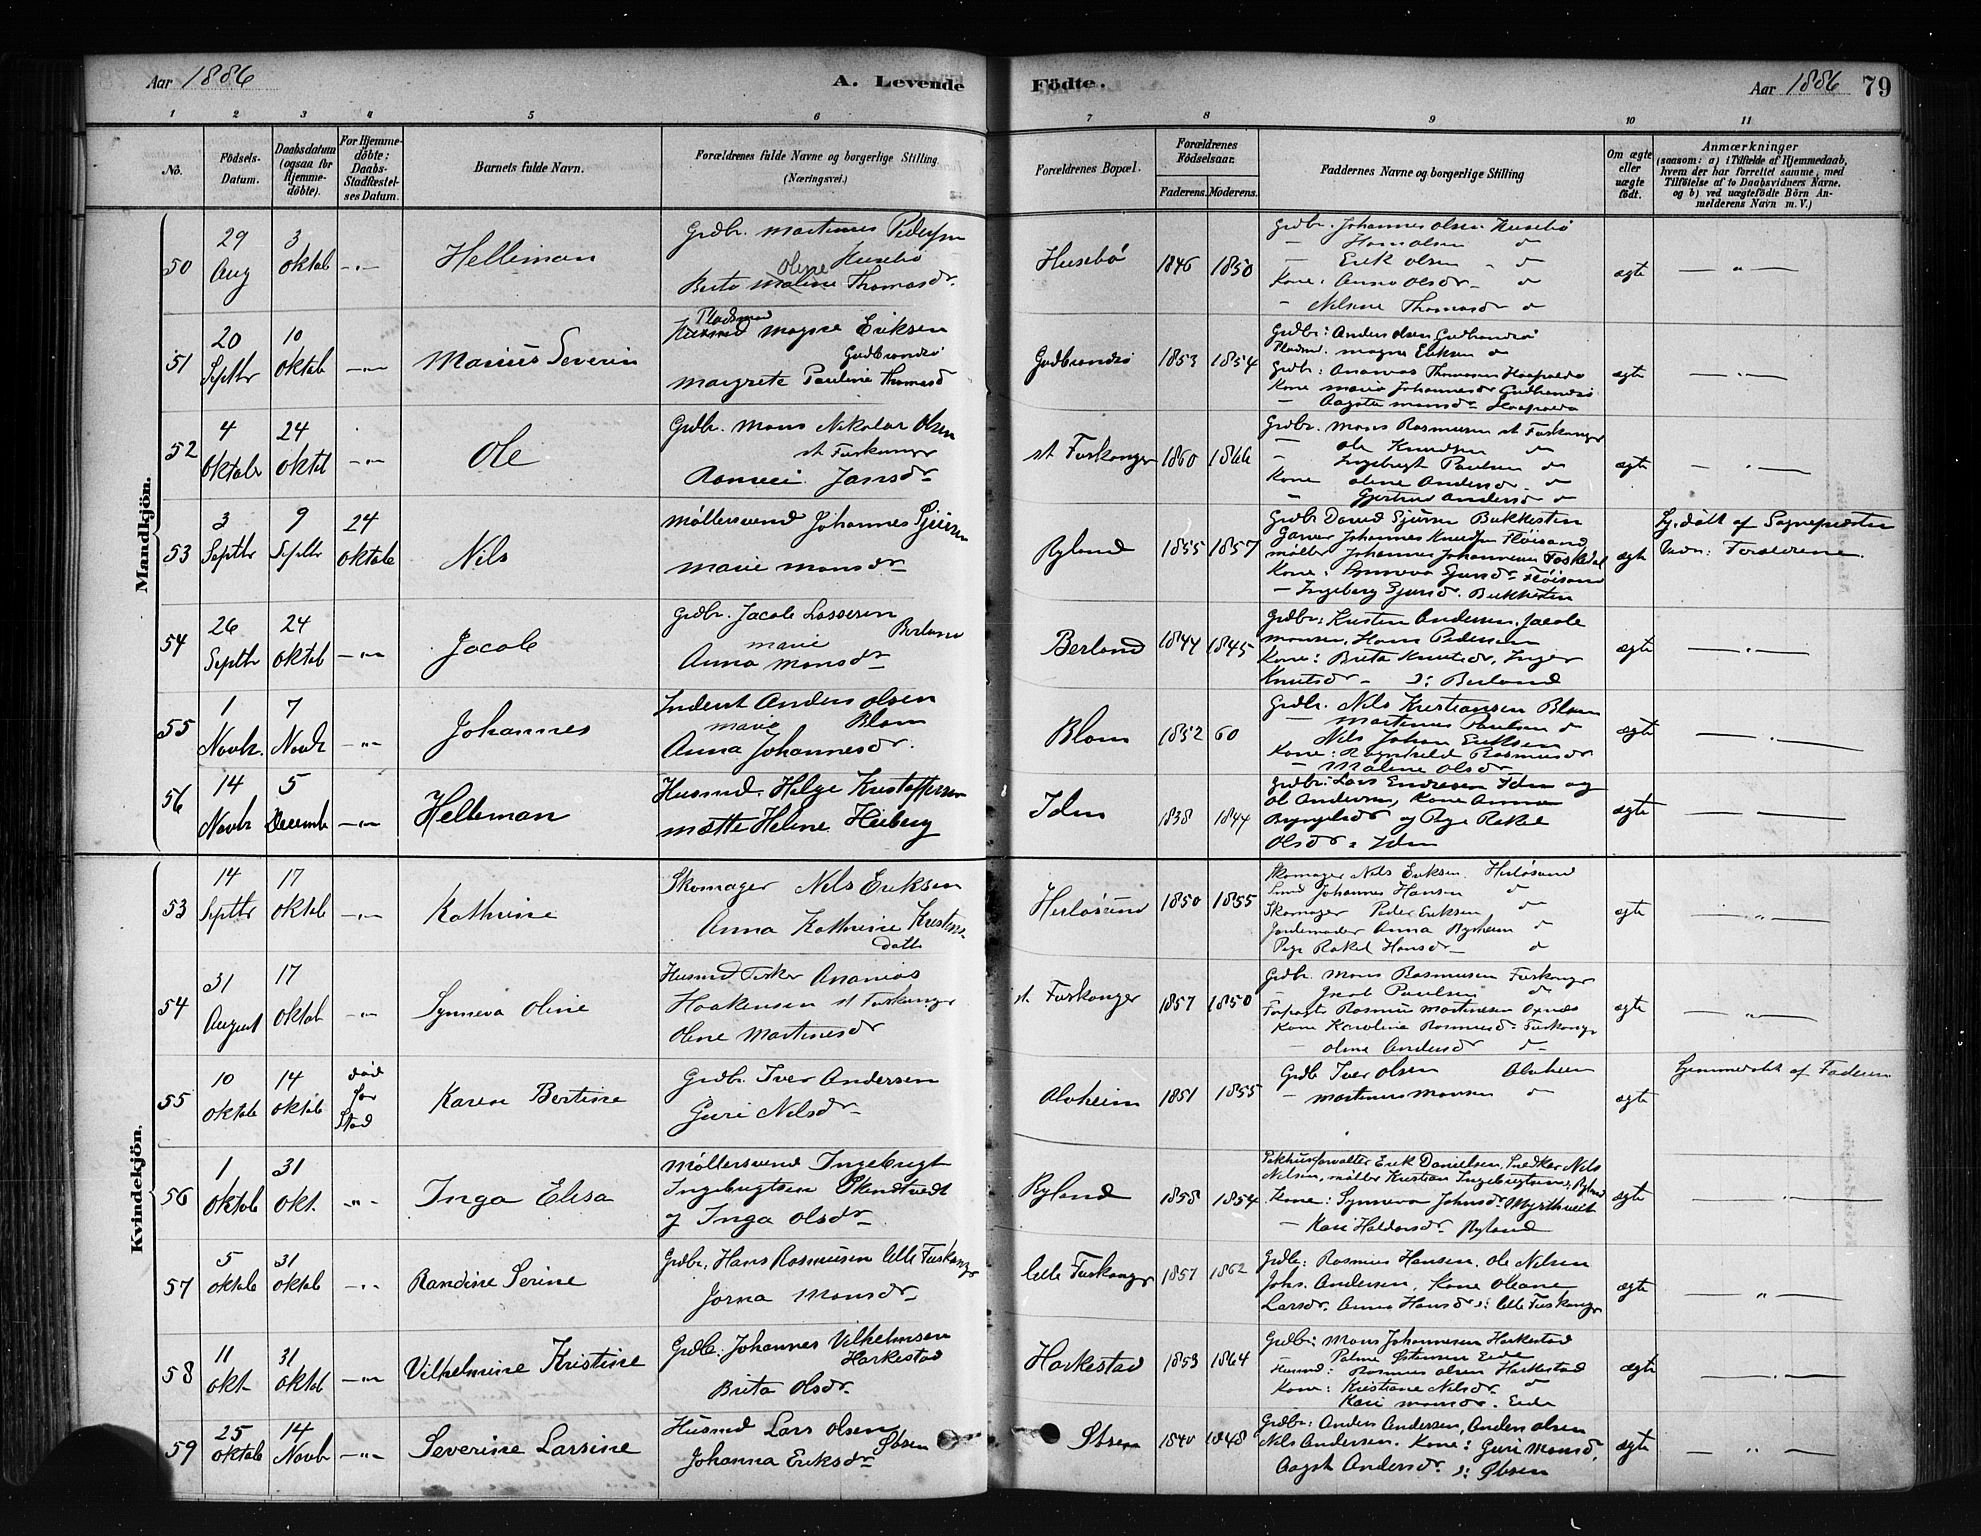 Aar 1886
A. Levende
Födte.
Aar 1886 79
1 2 3 4 5 6 7 8 9 10 11
No.
Födsels-Datum.
Daabsdatum (ogsaa for Hjemme-döbte).
For Hjemme-döbte: Daabs-Stadfæstel-ses Datum.
Barnets fulde Navn.
Forældrenes fulde Navne og borgerlige Stilling (Næringsvei.)
Forældrenes Bopæl.
Forældrenes Födselsaar.
Faderens. Moderens.
Faddernes Navne og borgerlige Stilling
Om ægte eller uægte født.
Anmærkninger
(saasom: a) i Tilfælde af Hjemmedaab, hvem der har forrettet samme, med Tilföielse af to Daabsvidners Navne, og b) ved uægtefödte Börn Anmelderens Navn m. V.)
Mandkjön.
50 29 Aug 3 oktob -"- Helliman
Grdbr. Martinus Pedersen
Husebö
Berta Olene Thomasdr.
Husebö 1846 1850
Grdbr. Johannes Olsen Husebö
— Hans Olsen do
— Erik Olsen do
Kone: Anna Olsdr. do
— Nilsine Thomasdr do
ægte — " —
51 20 Septbr 10 oktob -"- Marius Severin
Pladsmd Magne Eriksen
Gudbrandsö
Margrete Pauline Thomasd
Gudbrandsö 1853 1854
Grdbr: Anders Olsen Gudbrandsö
Pladsmd. Magne Eriksen do
Grdbr: Ananias Thomassen
Kone Maria Johannesdr Gudbrandsö
— Monsdr
ægte — " —
52 4 Oktobr 24 oktob -"- Ole
Grdbr. Mons Nikolai Olsen
st Fuskanger
Jansdr
st Fuskanger 1860 1866
Grdbr. Mons Rasmussen st Fuskanger
— Ole Knudsen do
— Ingebrigt Paulsen do
Kone Olene Andersdr. do
— Gjertrud Andersdr do
ægte — " —
53 3 Septbr 9 Septbr 24 oktob Nils
Möllersvend Johannes
Marie Monsdr
Ryland 1855 1857
Grdbr David Bukkesten
Garver Johannes Knudsen Flöisand
Möller Johannes Johannesen
Kone: Synneva Flöisand
— Ingeborg Bukkesten
ægte
Hj.döbt af Sognepresten
Vidn: Forældrene.
54 26 Septbr 24 oktob -"- Jacob
Grdbr. Jacob Lassesen
Berland
Anna Marie Monsdr
Berland 1844 1845
Grdbr: Kristen Andersen, Jacob
Monsen, Hans Pedersen
Kone: Brita Knutsdr, Inger
Knutsdr — s: Berland
ægte — " —
55 1 Novbr. 7 Novbr -"- Johannes
Inderst Anders Olsen
Blom
Anna Maria Johannesdr.
Blom 1852 60
Grdbr. Nils Kristiansen Blom
— Martinus Paulsen do
Nils Johan Eriksen
Kone: Ragnhild Rasmusdr
— Malene Olsdr
ægte — " —
56 14 Novbr 5 Decemb -"- Helleman
Husmd. Helge Kristoffersen
Mætte Helene Heiberg
Iden 1838 1844
Grdbr: Lars Endresen Iden og
Ole Andersen, Kone Anna
og Pige Rakel
Olsdr s Iden
ægte — " —
Kvindekjön.
53 14 Septbr 17 oktob -"- Kathrine
Skomager Nils Eriksen
Anna Kathrine Kristens-
datter
Herlösund 1850 1855
Skomager Nils Eriksen Herlösund
Smed Johannes Hansen do
Skomager Peder Eriksen do
Jordemoder Anna do
Pige Rakel Hansdr do
ægte — " —
54 31 August 17 oktob -"- Synneva Oline
Husmd Fisker Ananias
Haakensen st Fuskanger
Olene Martinusdr
st. Fuskanger 1857 1850
Grdbr. Mons Rasmussen Fuskanger
— Jacob Paulsen do
Forpagter Rasmus Martinesen Oxnæs
Kone Karolina Rasmusdr Fuskange
— Olena Andersdr do
ægte — " —
55 10 oktob 14 oktob död før Stad Karen Bertine
Grdbr. Iver Andersen
Guri Nilsdr
Alvheim 1851 1855
Grdb Iver Olsen Alvheim
— Martinus Monsen do
ægte
Hjemmedöbt af Faderen
56 1 oktob 31 okt. -"- Inga Elisa
Möllersvend Ingebrigt
Ingebrigtsen
og Inga Olsdr
Ryland 1858 1854
Pakhusforvalter Erik Danielsen, Snedker Nils
Nilsen, Möller Kristian Ingebrigtsen, Ryland
Kone: Synneva Johnsdr Myrthveit
— Kari Haldorsdr Ryland
ægte — " —
57 5 oktob 31 oktob -"- Randine Serine
Grdbr. Hans Rasmussen lille Fuskanger
Jorna Monsdr
lille Fuskanger 1857 1862
Grdb: Rasmus Hansen, Ole Nilsen
Johs. Andersen, Kone Oleane
Larsdr. Anna Hansdr s: lille Fuskange
ægte — " —
58 11 okt. 31 oktob -"- Vilhelmine Kristine
Grdb. Johannes Vilhelmsen
Harkestad
Brita Olsdr.
Harkestad 1853 1864
Grdbr: Mons Johannesen Harkestad
— Eide
Husmd: Rasmus Olsen Harkestad
Kone: Kristiane Nilsdr. do
Kari Monsdr. Eide
ægte — " —
59 25 oktob 14 Novb -"- Severine Larsine
Husmd Lars Olsen
Öbsen
Johanna Eriksdr
Öbsen 1840 1848
Grdbr: Anders Andersen, Anders Olsen
Nils Andersen. Kone: Guri Monsd,
Andersdr. s: Öbsen
ægte — " —